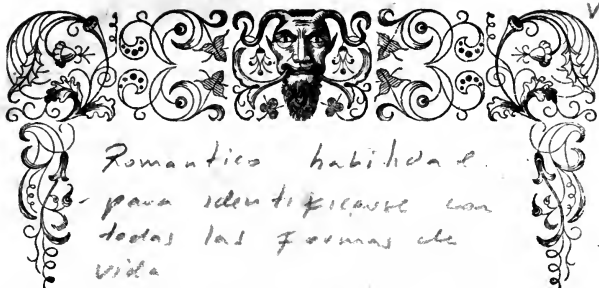 Romantico habilidad
para identificarse con
todas las formas de
vida